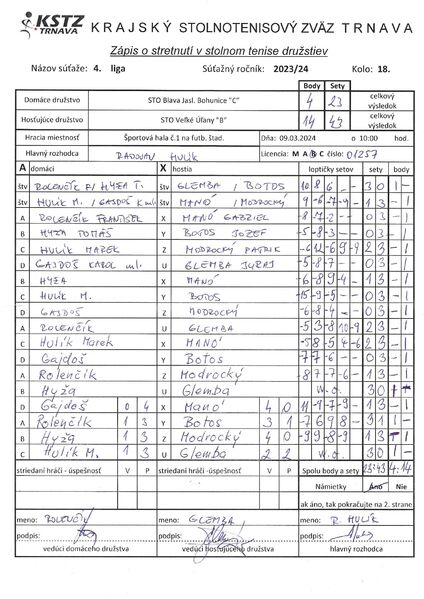 KSTZ TRNAVA KRAJSKÝ STOLNOTENISOVÝ ZVÄZ TRNAVA
Zápis o stretnutí v stolnom tenise družstiev
Názov súťaže: 4. liga Súťažný ročník: 2023/24 Kolo: 18.
Body Sety
Domáce družstvo STO Blava Jasl. Bohunice "C" 4 23 celkový výsledok
Hosťujúce družstvo STO Veľké Úľany "B" 14 43 celkový výsledok
Hracia miestnosť Športová hala č.1 na futb. štad. Dňa: 09.03.2024 o 10:00 hod.
Hlavný rozhodca RADOVAN HULÍK Licencia: M A B C číslo: 01257
A domáci X hostia loptičky setov sety body
štv ROLENČÍK F/HYŽA T. štv GLEMBA / BOTOS 10 8 6 30 1-
štv HULÍK M. / GAJDOŠ K ml. štv MANÓ / MODROCKÝ 13 -1
A ROLENČÍK FRANTIŠEK X MANÓ GABRIEL -8-7-2 03 -1
B HYŽA TOMÁŠ Y BOTOS JOZEF -5-8-3 03 -1
C HULÍK MAREK Z MODROCKÝ PATRIK 23 -1
D GAJDOŠ KAROL ml. U GLEMBA JURAJ -5-8-7 03 -1
B HYŽA X MANÓ -6-8 9-4 13 -1
C HULÍK M. Y BOTOS -15-9-5 03 -1
D GAJDOŠ Z MODROCKÝ -6-8-4 03 -1
A ROLENČÍK U GLEMBA 23 -1
C HULÍK MAREK X MANÓ 23 -1
D Gajdoš Y Botos 03 -1
A Rolenčík Z Modrocký 13 -1
B Hyža U Glemba w.o. 30
D Gajdoš 0 4 X Manó 4 0 11-9-7-9 13 -1
A Rolenčík 1 3 Y Botos 3 1 31 1-
B Hyža 1 3 Z Modrocký 4 0 13 -1
C HULÍK M. 1 3 U Glemba 2 2 w.o. 30 1-
striedaní hráči - úspešnosť V P striedaní hráči - úspešnosť V P Spolu body a sety 23:43 4:14
Námietky Áno Nie
ak áno, tak pokračujte na 2. strane.
meno: ROLENČÍK meno: GLEMBA meno: R. HULÍK
podpis: podpis: podpis:
vedúci domáceho družstva vedúci hosťujúceho družstva hlavný rozhodca